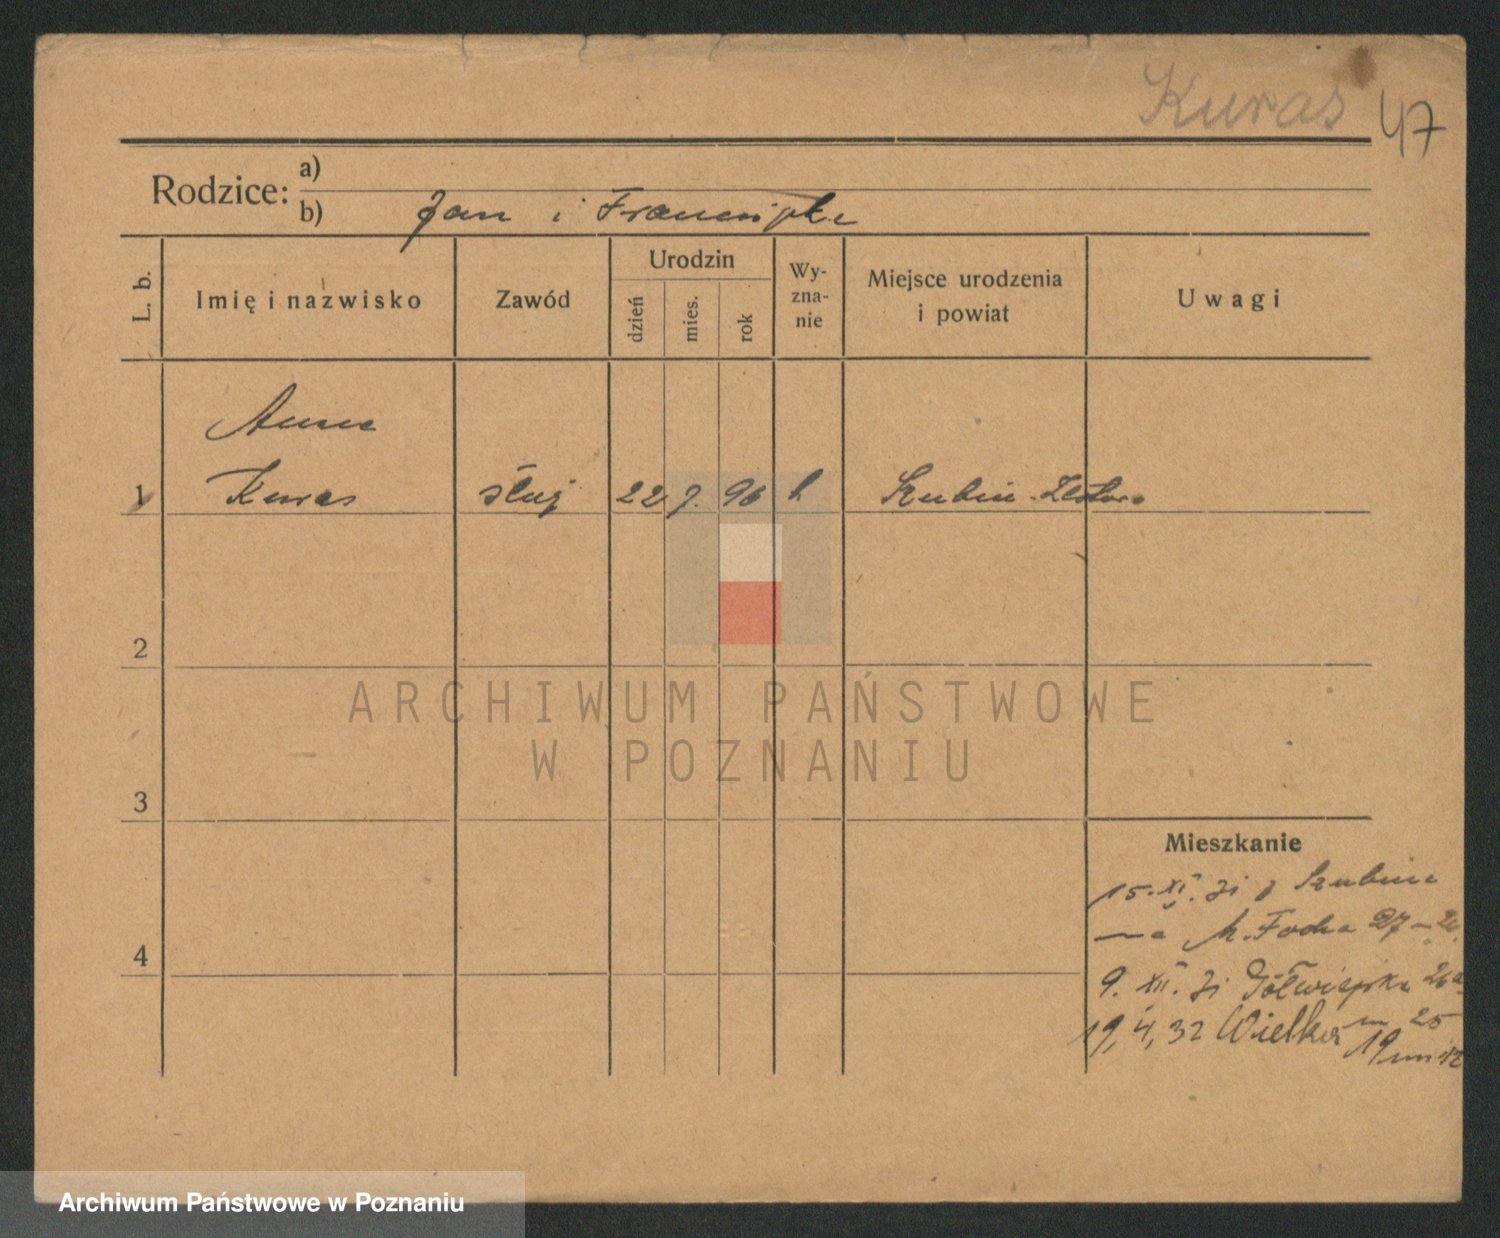 Kuras 47
Rodzice: a)
b) Jan i Franciszka
L. b.
Imię i nazwisko
Zawód
Urodzin
dzień
mies.
rok
Wy-
zna-
nie
Miejsce urodzenia
i powiat
Uwagi
Anna
1 Kuras służ 22 7. 96 k Szubin
2
ARCHIWUM PAŃSTWOWE
W POZNANIU
3
Mieszkanie
15. XI. 31 z Szubina
M. Focha 27
4
9. XII. 31 Półwiejska 26a
19, 4, 32 Wielka 19 m 12
m 25
Archiwum Państwowe w Poznaniu